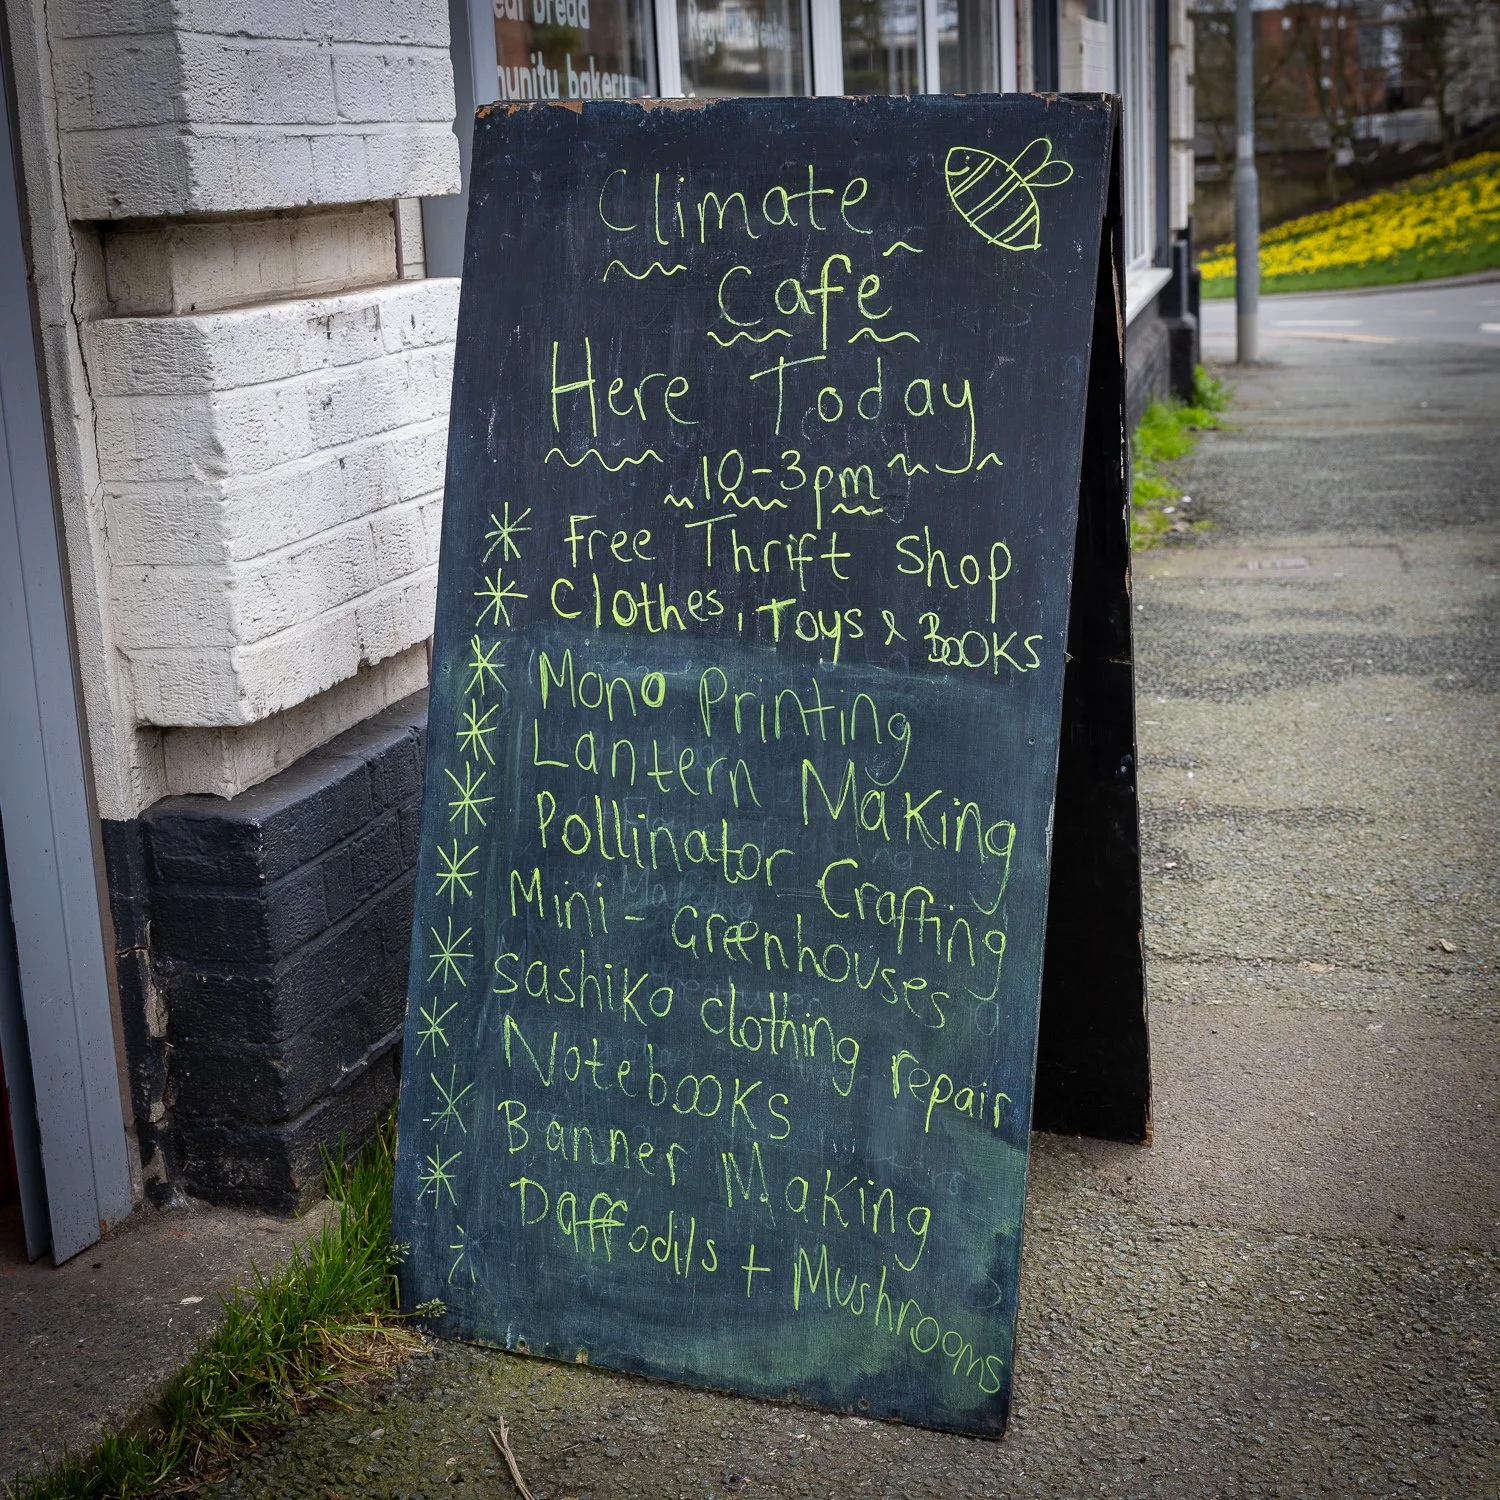 bread
bakery
Regular events
Climate
Café
Here Today
10-3pm
Free Thrift Shop
Clothes, Toys & Books
Mono Printing
Lantern Making
Pollinator Crafting
Mini-Greenhouses
Sashiko clothing repair
Notebooks
Banner Making
Daffodils + Mushrooms